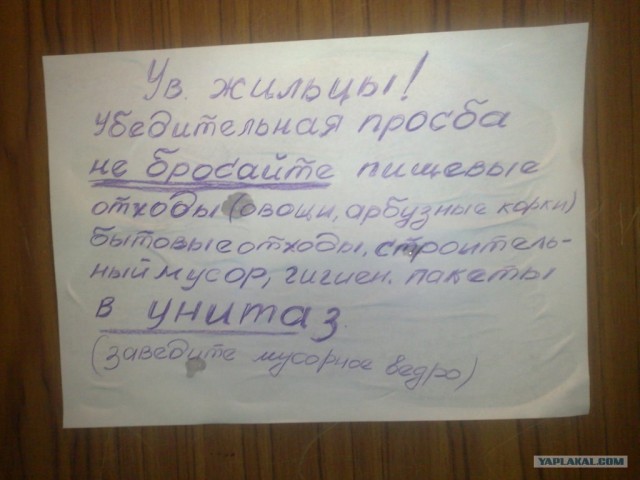 Ув. жильцы!
Убедительная просба
не бросайте пищевые
отходы (овощи, арбузные корки)
бытовые отходы, строитель-
ный мусор, гигиен. пакеты
в унитаз.
(заведите мусорное ведро)
YAPLAKAL.COM